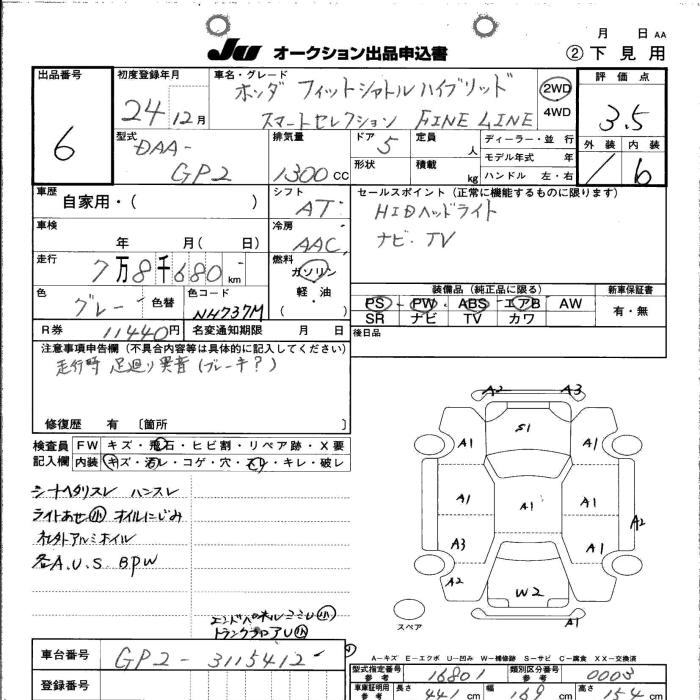 月 日 AA
JU オークション出品申込書 ②下見用
出品番号 6
初度登録年月 24年12月
車名・グレード ホンダ フィットシャトルハイブリッド
スマートセレクション FINE LINE
2WD
4WD
評価点 3.5
外装 内装
型式 DAA-
GP2
排気量 1300cc
ドア 5
形状
定員 人
積載 kg
ディーラー・並行
モデル年式 年
ハンドル 左・右
車歴 自家用・( )
シフト AT
セールスポイント(正常に機能するものに限ります)
HIDヘッドライト
ナビ・TV
車検 年 月( 日)
冷房 AAC
走行 7万8千680km
燃料 ガソリン
軽・油
( )
色 グレー 色替
色コード NH737M
装備品(純正品に限る)
PS PW ABS エアB AW
SR ナビ TV カワ
新車保証書
有・無
R券 11440円 名変通知期限 月 日
後日品
注意事項申告欄(不具合内容等は具体的に記入してください)
走行時 足廻り異音(ブレーキ?)
修復歴 有 〔箇所 〕
検査員 FW キズ・飛石・ヒビ割・リペア跡・X要
記入欄 内装 キズ・汚レ・コゲ・穴・スレ・キレ・破レ
シートヘタリスレ ハンスレ
ライトあせ小 オイルにじみ
社外アルミホイル
各A.U.S. BPW
トランクフロアU小
A2 A3
S1
A1 A1
A1 A1 A1
A2
A3 A1
A2
W2
A1
スペア
A-キズ E-エクボ U-凹み W-補修跡 S-サビ C-腐食 XX-交換済
車台番号 GP2-3115412
登録番号
型式指定番号 参考 16801
類別区分番号 参考 0003
車庫証明用 参考 長さ 441cm 幅 169cm 高さ 154cm